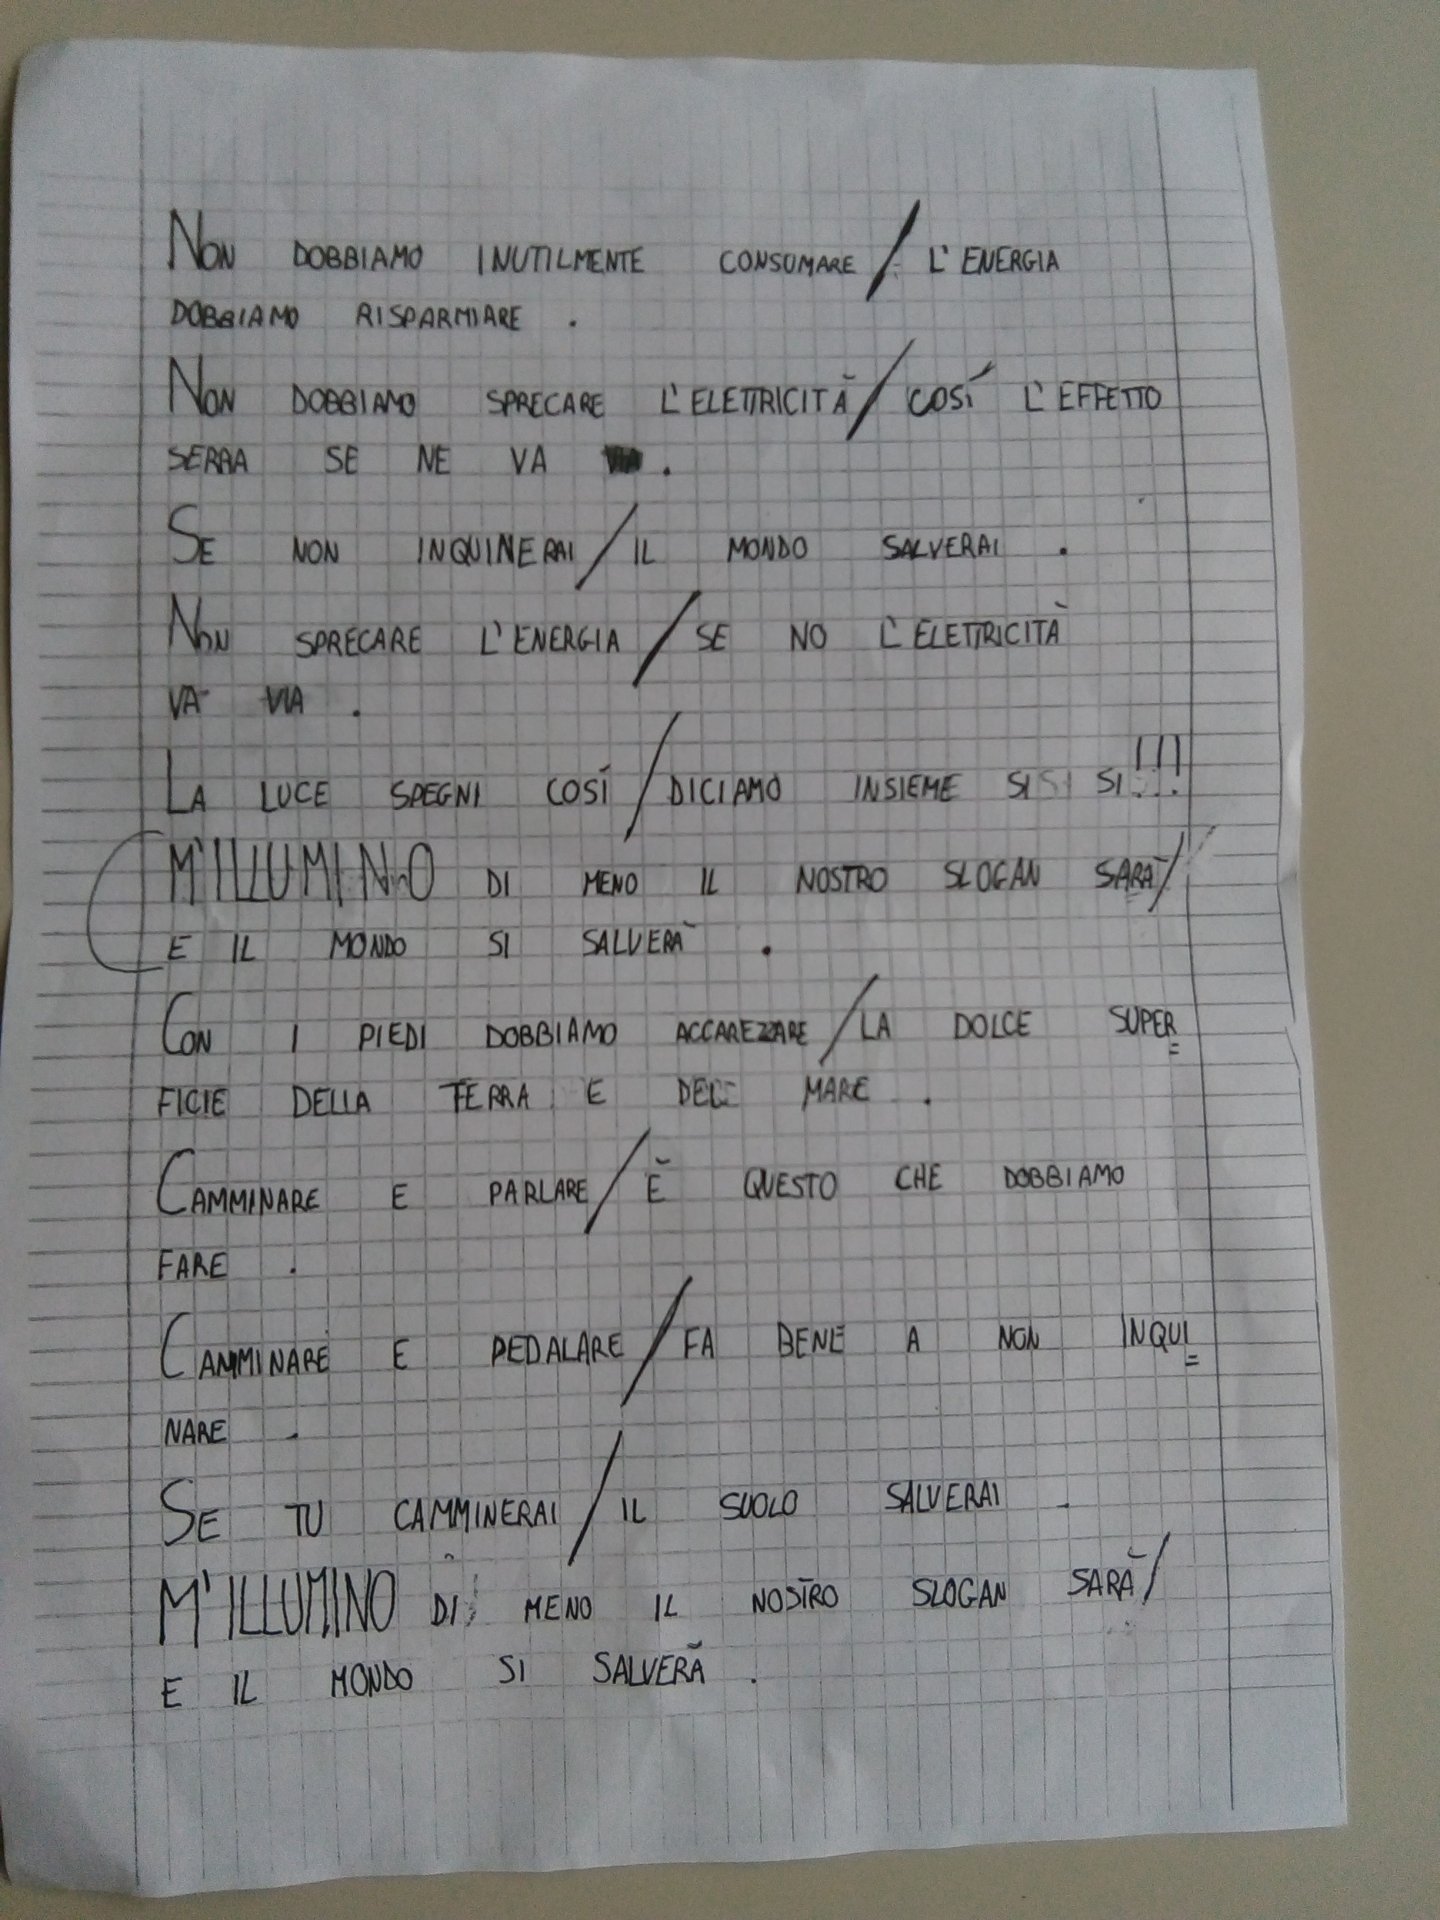 NON DOBBIAMO INUTILMENTE CONSUMARE / L'ENERGIA
DOBBIAMO RISPARMIARE .
NON DOBBIAMO SPRECARE L'ELETTRICITÀ / COSÍ L'EFFETTO
SERRA SE NE VA .
SE NON INQUINERAI / IL MONDO SALVERAI .
NON SPRECARE L'ENERGIA / SE NO L'ELETTRICITÀ
VA VIA .
LA LUCE SPEGNI COSÍ / DICIAMO INSIEME SI SI SI !!!
M'ILLUMINO DI MENO IL NOSTRO SLOGAN SARÀ /
E IL MONDO SI SALVERÀ .
CON I PIEDI DOBBIAMO ACCAREZZARE / LA DOLCE SUPER=
FICIE DELLA TERRA E DEL MARE .
CAMMINARE E PARLARE / È QUESTO CHE DOBBIAMO
FARE .
CAMMINARE E PEDALARE / FA BENE A NON INQUI=
NARE .
SE TU CAMMINERAI / IL SUOLO SALVERAI .
M'ILLUMINO DI MENO IL NOSTRO SLOGAN SARÀ /
E IL MONDO SI SALVERÀ .